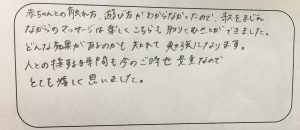 赤ちゃんとの触れ方、遊び方がわからなかったので、歌をまじえ
ながらのマッサージは楽しくこちらも触りくむことができました。
どんな効果があるのかも知れて 勉強になります。
人との接する時間も今のご時世 貴重なので
とても嬉しく思いました。